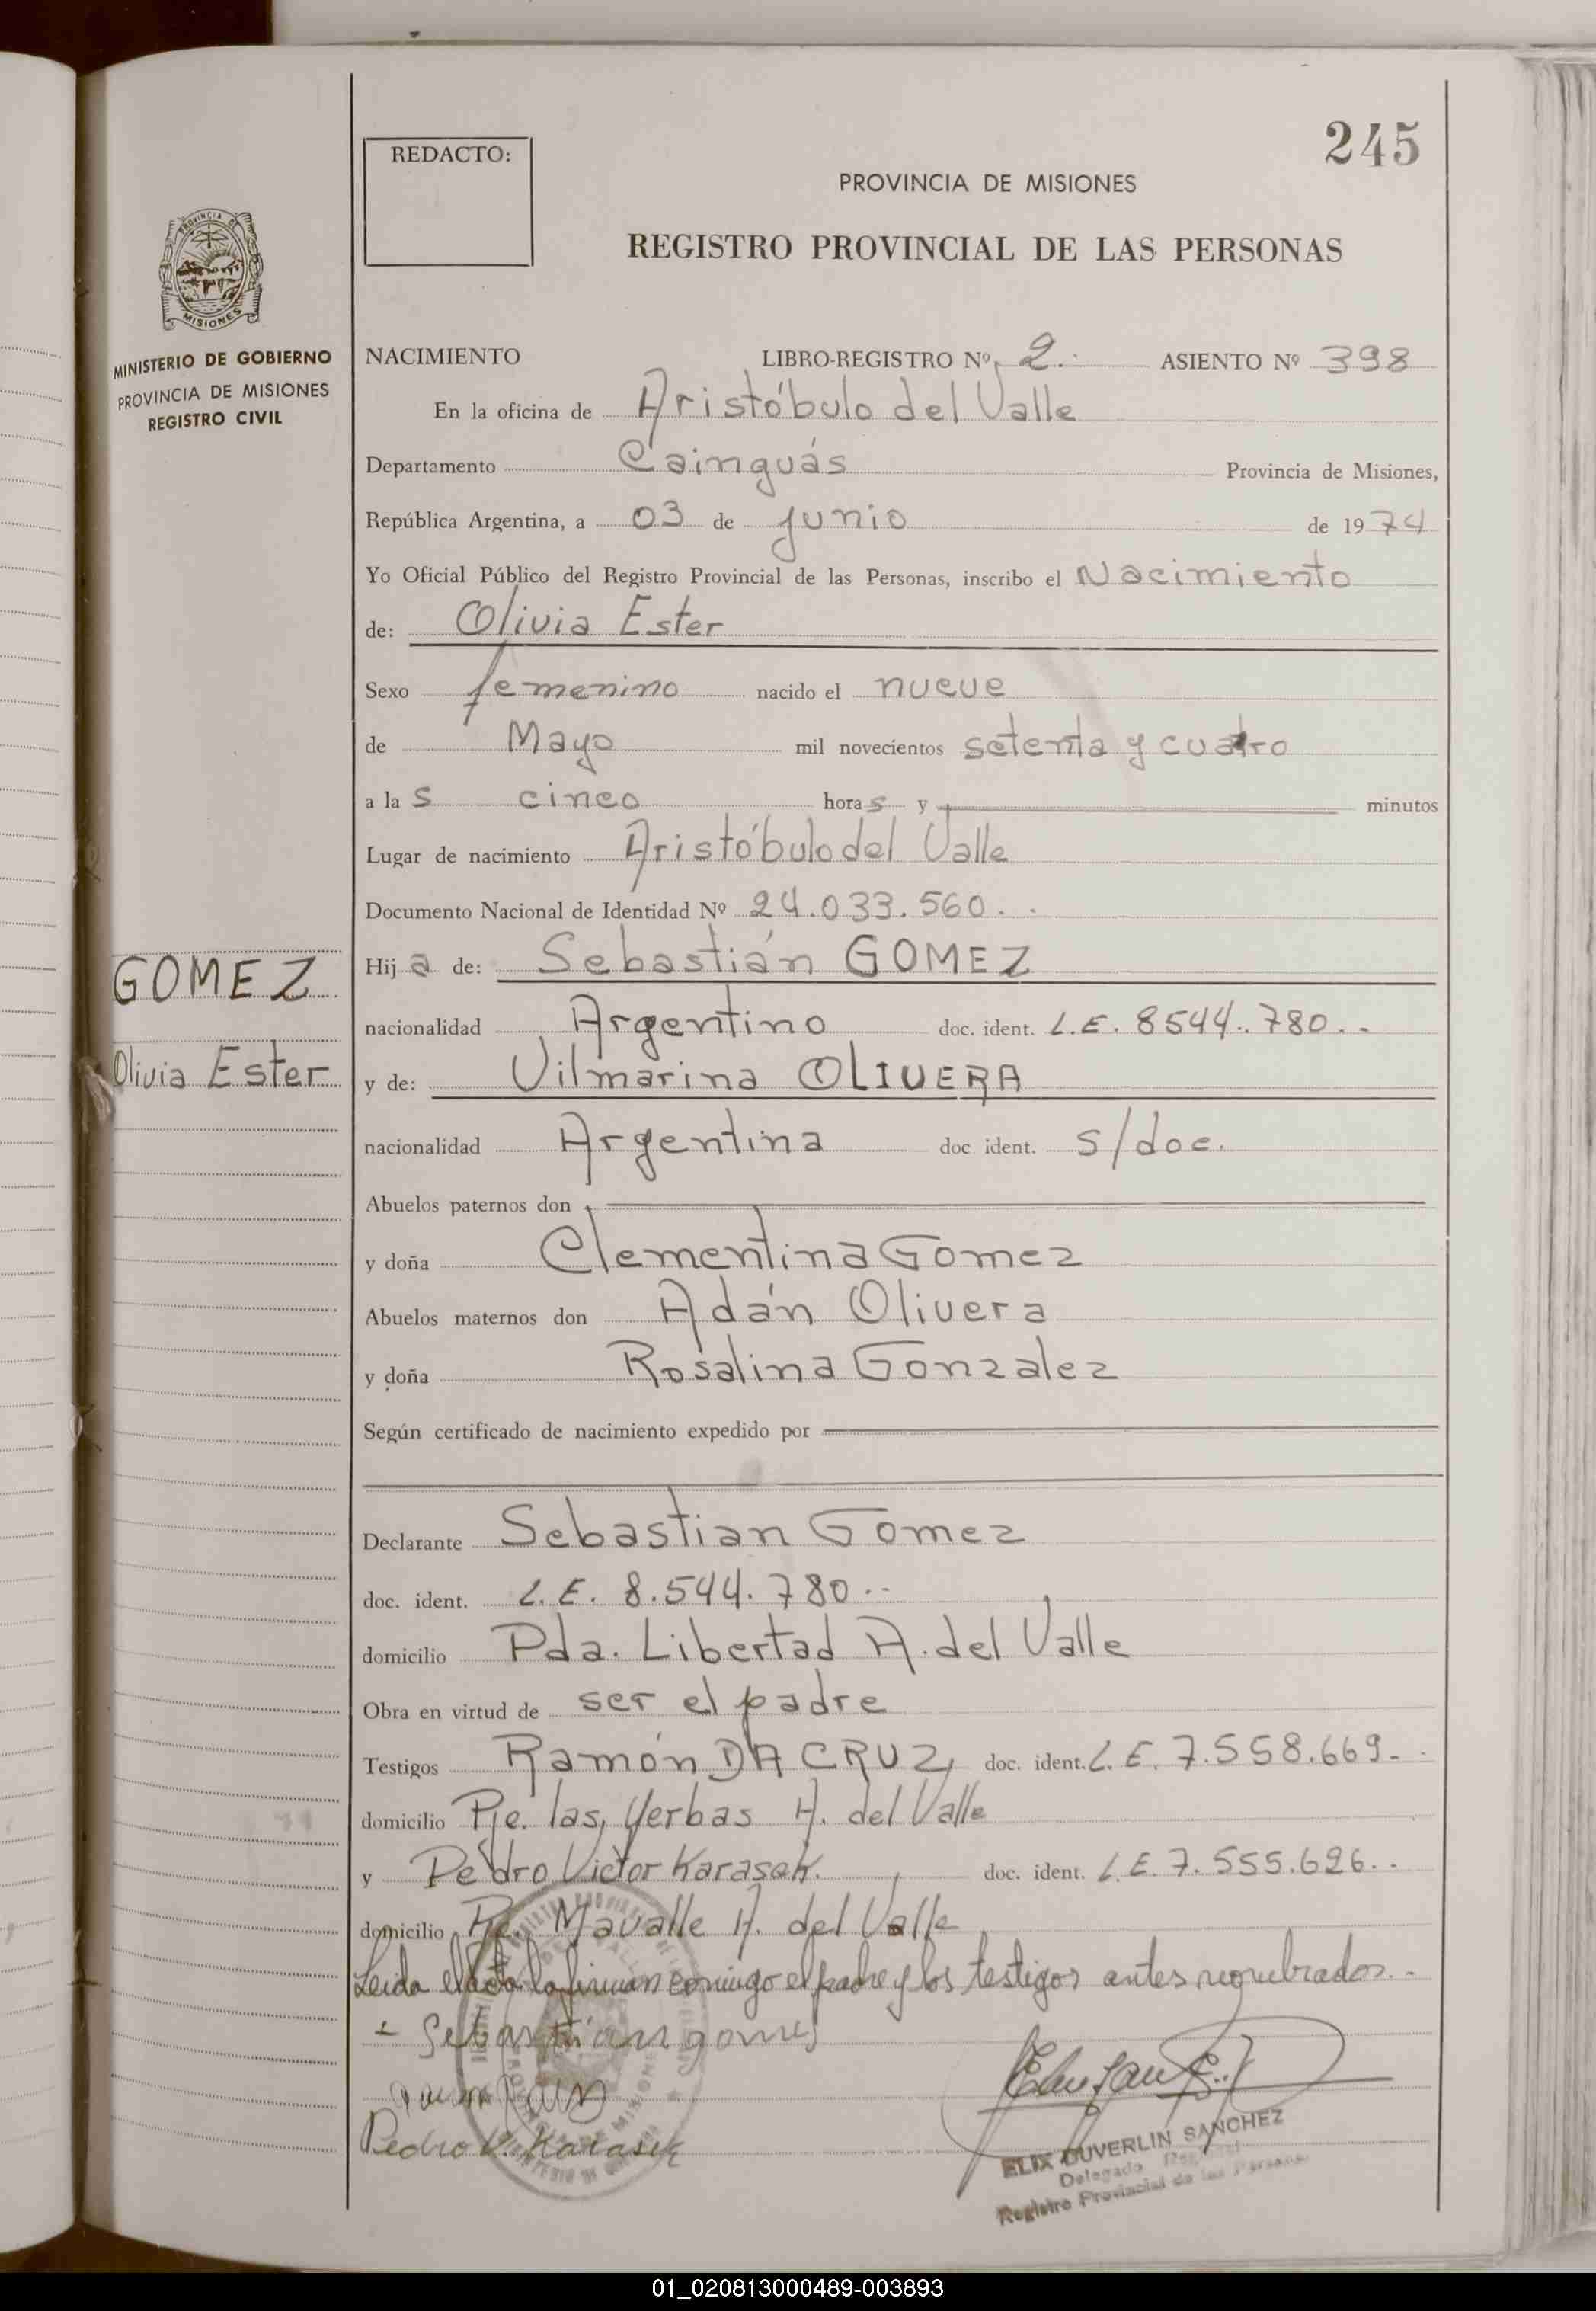 245
REDACTO:
PROVINCIA DE MISIONES
REGISTRO PROVINCIAL DE LAS PERSONAS
PROVINCIA DE
MISIONES
MINISTERIO DE GOBIERNO
PROVINCIA DE MISIONES
REGISTRO CIVIL
NACIMIENTO LIBRO-REGISTRO Nº 2. ASIENTO Nº 398
En la oficina de Aristóbulo del Valle
Departamento Cainguás Provincia de Misiones,
República Argentina, a 03 de junio de 1974
Yo Oficial Público del Registro Provincial de las Personas, inscribo el Nacimiento
de: Olivia Ester
Sexo femenino nacido el nueve
de Mayo mil novecientos setenta y cuatro
a la s cinco hora s y minutos
Lugar de nacimiento Aristóbulo del Valle
Documento Nacional de Identidad Nº 24.033.560..
GOMEZ
Olivia Ester
Hij a de: Sebastián GOMEZ
nacionalidad Argentino doc. ident. L.E. 8544.780..
y de: Vilmarina OLIVERA
nacionalidad Argentina doc ident. s/doc.
Abuelos paternos don
y doña Clementina Gomez
Abuelos maternos don Adán Olivera
y doña Rosalina Gonzalez
Según certificado de nacimiento expedido por
Declarante Sebastian Gomez
doc. ident. L.E. 8.544.780..
domicilio Pda. Libertad A. del Valle
Obra en virtud de ser el padre
Testigos Ramón DA CRUZ, doc. ident. L.E. 7.558.669-.
domicilio Pje. las Yerbas A. del Valle
y Pedro Victor Karasek. doc. ident. L.E. 7.555.626..
domicilio Pje. Mavalle A. del Valle
Leida el acta la firman conmigo el padre y los testigos antes nombrados.-
Sebastian gomes
Pedro V. Karasek
ELIX DUVERLIN SANCHEZ
Delegado
Registro Provincial de las Personas
01_020813000489-003893